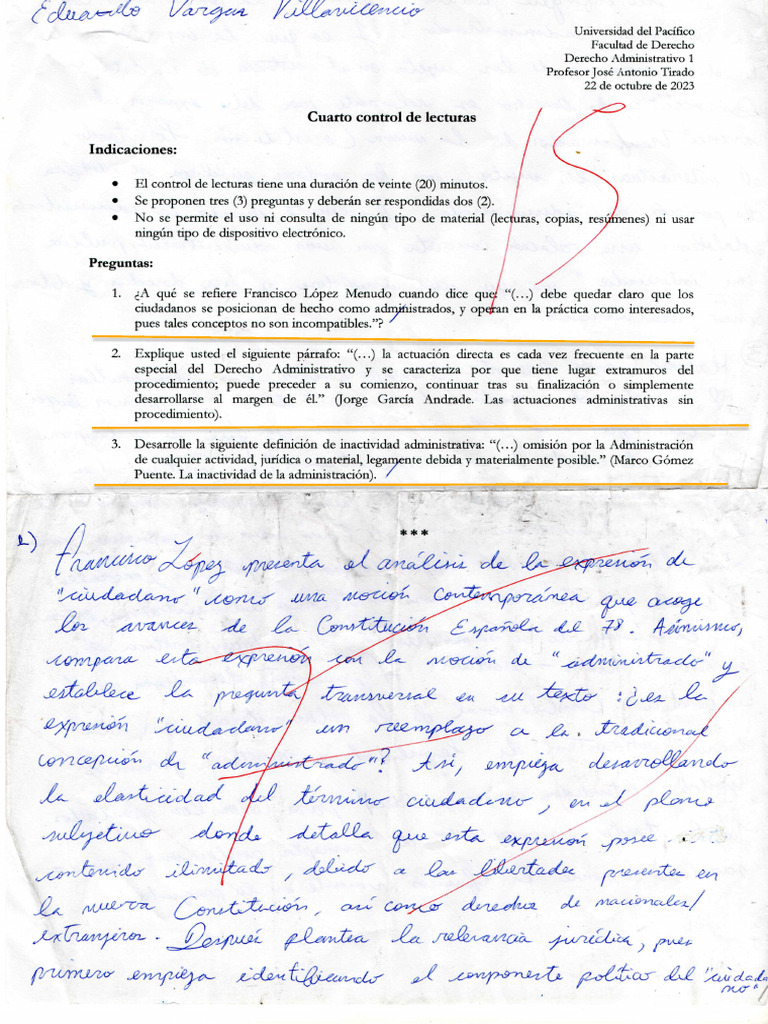 Eduardo Vargas Villavicencio
Universidad del Pacífico
Facultad de Derecho
Derecho Administrativo 1
Profesor José Antonio Tirado
22 de octubre de 2023
15
Cuarto control de lecturas
Indicaciones:
• El control de lecturas tiene una duración de veinte (20) minutos.
• Se proponen tres (3) preguntas y deberán ser respondidas dos (2).
• No se permite el uso ni consulta de ningún tipo de material (lecturas, copias, resúmenes) ni usar
ningún tipo de dispositivo electrónico.
Preguntas:
1. ¿A qué se refiere Francisco López Menudo cuando dice que: “(…) debe quedar claro que los
ciudadanos se posicionan de hecho como administrados, y operan en la práctica como interesados,
pues tales conceptos no son incompatibles.”?
2. Explique usted el siguiente párrafo: “(…) la actuación directa es cada vez frecuente en la parte
especial del Derecho Administrativo y se caracteriza por que tiene lugar extramuros del
procedimiento; puede preceder a su comienzo, continuar tras su finalización o simplemente
desarrollarse al margen de él.” (Jorge García Andrade. Las actuaciones administrativas sin
procedimiento).
3. Desarrolle la siguiente definición de inactividad administrativa: “(…) omisión por la Administración
de cualquier actividad, jurídica o material, legamente debida y materialmente posible.” (Marco Gómez
Puente. La inactividad de la administración).
***
Francisco López presenta el análisis de la expresión de
"ciudadano" como una noción contemporánea que acoge
los avances de la Constitución Española del 78. Asimismo,
compara esta expresión con la noción de "administrado" y
establece la pregunta transversal en su texto: ¿es la
expresión "ciudadano" un reemplazo a la tradicional
concepción de "administrado"? Así, empieza desarrollando
la elasticidad del término ciudadano, en el plano
subjetivo donde detalla que esta expresión posee
contenido ilimitado, debido a las libertades presentes en
la nueva Constitución, así como derechos de nacionales/
extranjeros. Después plantea la relevancia jurídica, pues
primero empieza identificando el componente político del "ciudada
no"